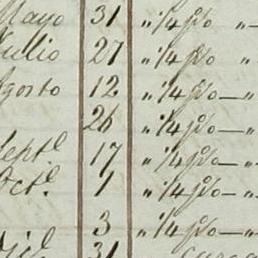 Mayo 31 " 1/4 p% "
Julio 27 " 1/4 p% "
Agosto 12 " 1/4 p% — "
26 " 1/4 p% — "
Septe 17 " 1/4 p% — "
Octe 1 " 1/4 p% — "
3 " 1/4 p% — "
31